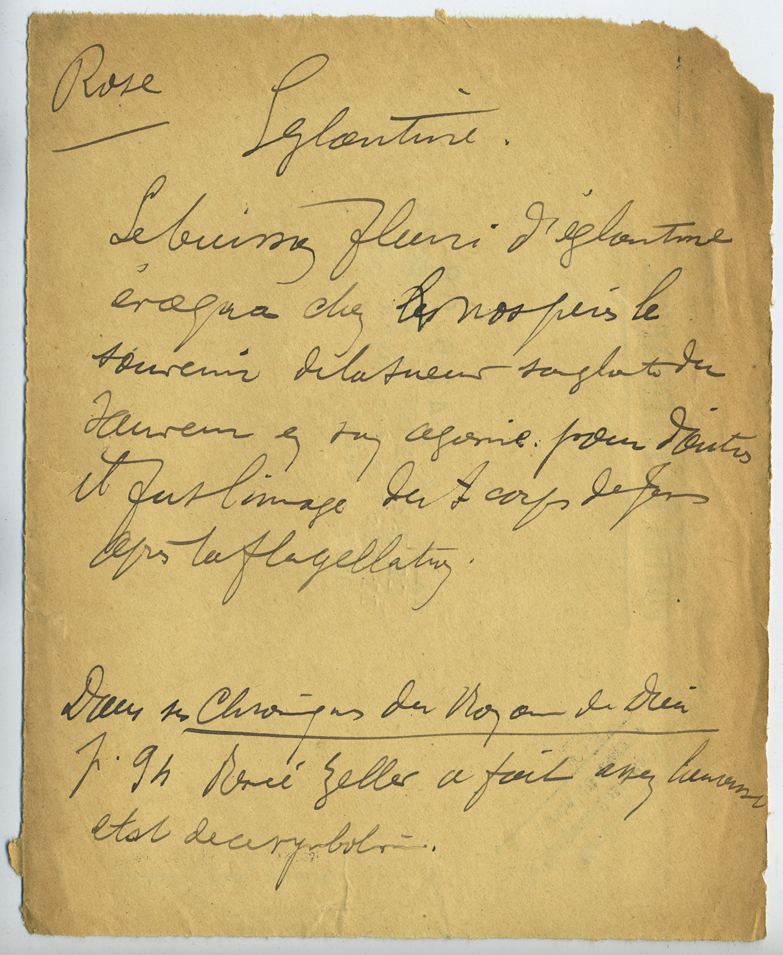 Rose
Eglantine.
Le buisson fleuri d'églantine
évoqua chez les nos pères le
souvenir de la sueur sanglante du
Sauveur en son agonie. pour d'autres
il fut l'image du corps de Jésus
après la flagellation.
Dans ses Chroniques du Royaume de Dieu
p. 94 René Zeller a fait assez heureuse
état de ce symbolisme.